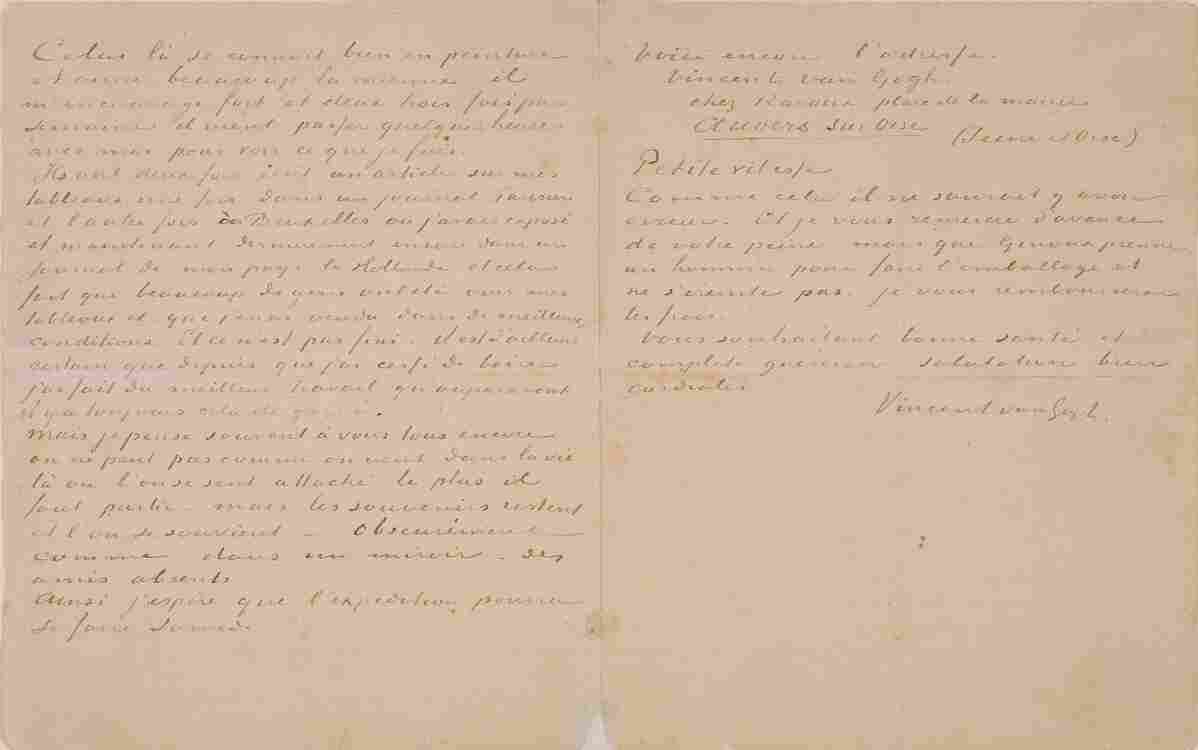 Celui là se connait bien en peinture
et aime beaucoup la mienne il
m'encourage fort et deux trois fois par
semaine il vient passer quelques heures
avec moi pour voir ce que je fais.
Ils ont deux fois écrit un article sur mes
tableaux une fois dans un journal Parisien
et l'autre fois à Bruxelles où j'avais exposé
et maintenant dernierement encore dans un
journal de mon pays la Hollande et cela
fait que beaucoup de gens ont été voir mes
tableaux et que j'en ai vendu dans de meilleures
conditions. Et ce n'est pas fini. il est d'ailleurs
certain que depuis que j'ai cessé de boire
j'ai fait du meilleur travail qu'auparavant
il y a toujours cela de gagné.
Mais je pense souvent à vous tous encore
on ne peut pas comme on veut dans la vie
là où l'on se sent attaché le plus il
faut partir. mais les souvenirs restent
et l'on se souvient – obscurément
comme dans un miroir – des
amis absents
Ainsi j'espère que l'expedition pourra
se faire Samedi.
Voici encore l'adresse.
Vincent van Gogh
chez Ravoux place de la mairie
Auvers sur Oise
(Seine et Oise)
Petite vitesse
Comme cela il ne saurait y avoir
erreur. Et je vous remercie d'avance
de votre peine mais que Ginoux prenne
un homme pour faire l'emballage et
ne s'ereinte pas. je vous rembourserai
les frais.
Vous souhaitant bonne santé et
complete guerison salutation bien
cordiales
Vincent van Gogh.